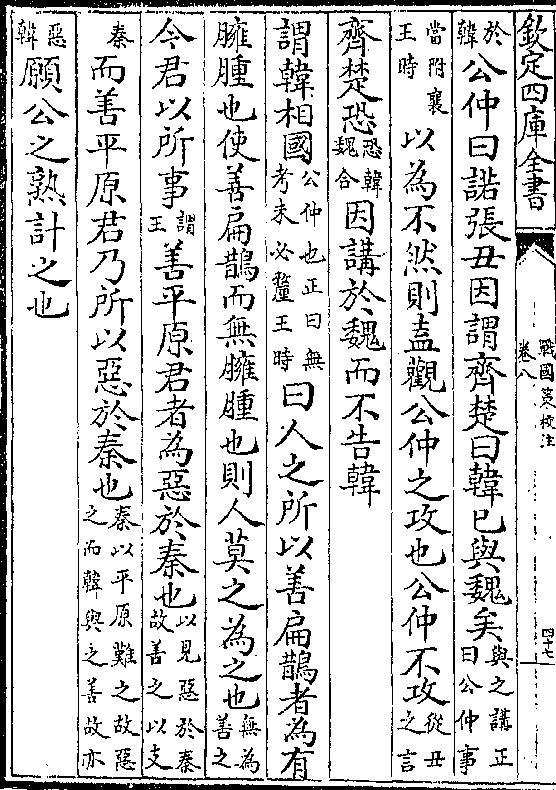 欽定四庫全書
戰國策校注
卷八
四十七
於韓公仲曰諾張丑因謂齊楚曰韓已與魏矣與之講正曰公仲事
當附襄王時以為不然則盖觀公仲之攻也公仲不攻從丑之言
齊楚恐恐韓魏合因講於魏而不告韓
謂韓相國公仲也正曰無考未必釐王時曰人之所以善扁鵲者為有
臃腫也使善扁鵲而無臃腫也則人莫之為之也無為善之
今君以所事謂王善平原君者為惡於秦也以見惡於秦故善之以支
秦而善平原君乃所以惡於秦也秦以平原難之故惡之而韓與之善故亦
惡韓願公之熟計之也